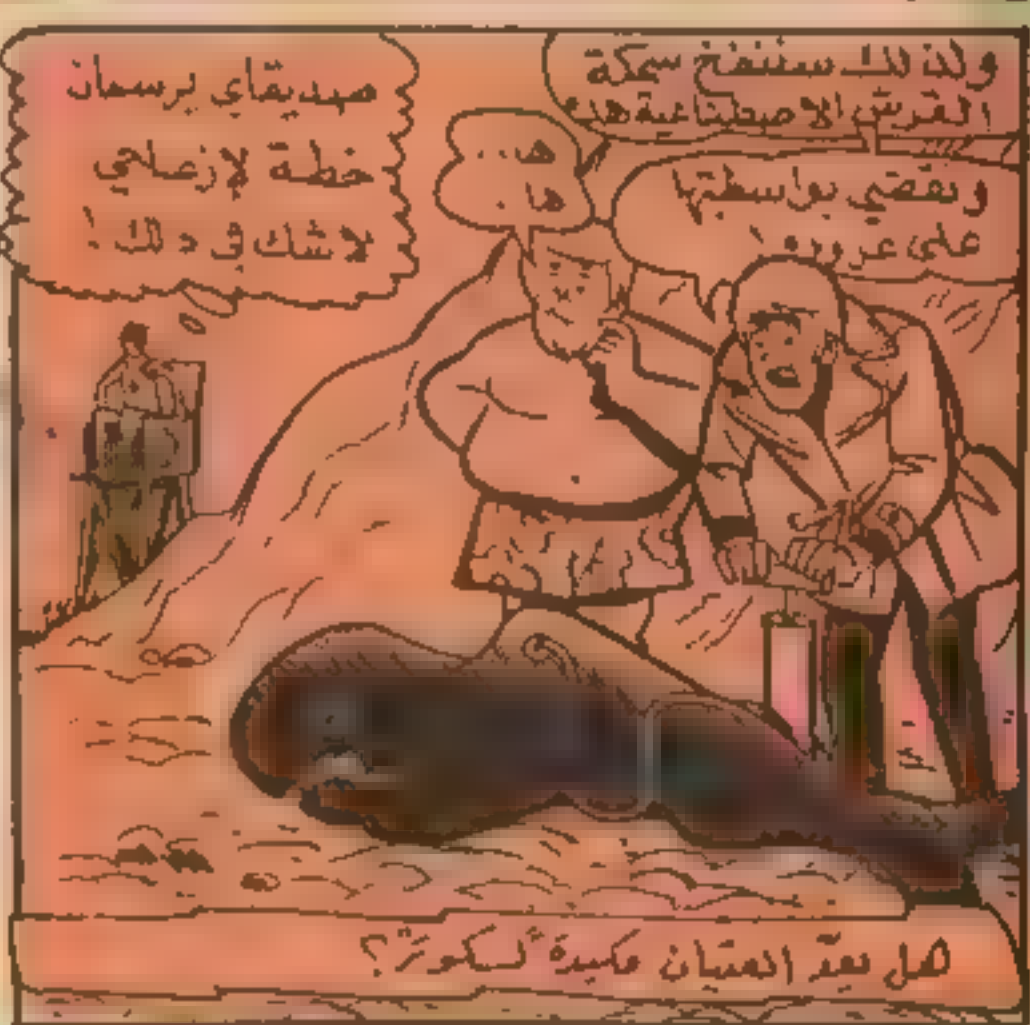 ولذلك سننفخ سمكة
القرش الاصطناعية هذه
ونقضي بواسطتها
على غروره !
ها..
ها.
صديقاي يرسمان
خطة لإزعاجي
لا شك في ذلك !
هل يعدّ الفتيان مكيدة "لـكـ